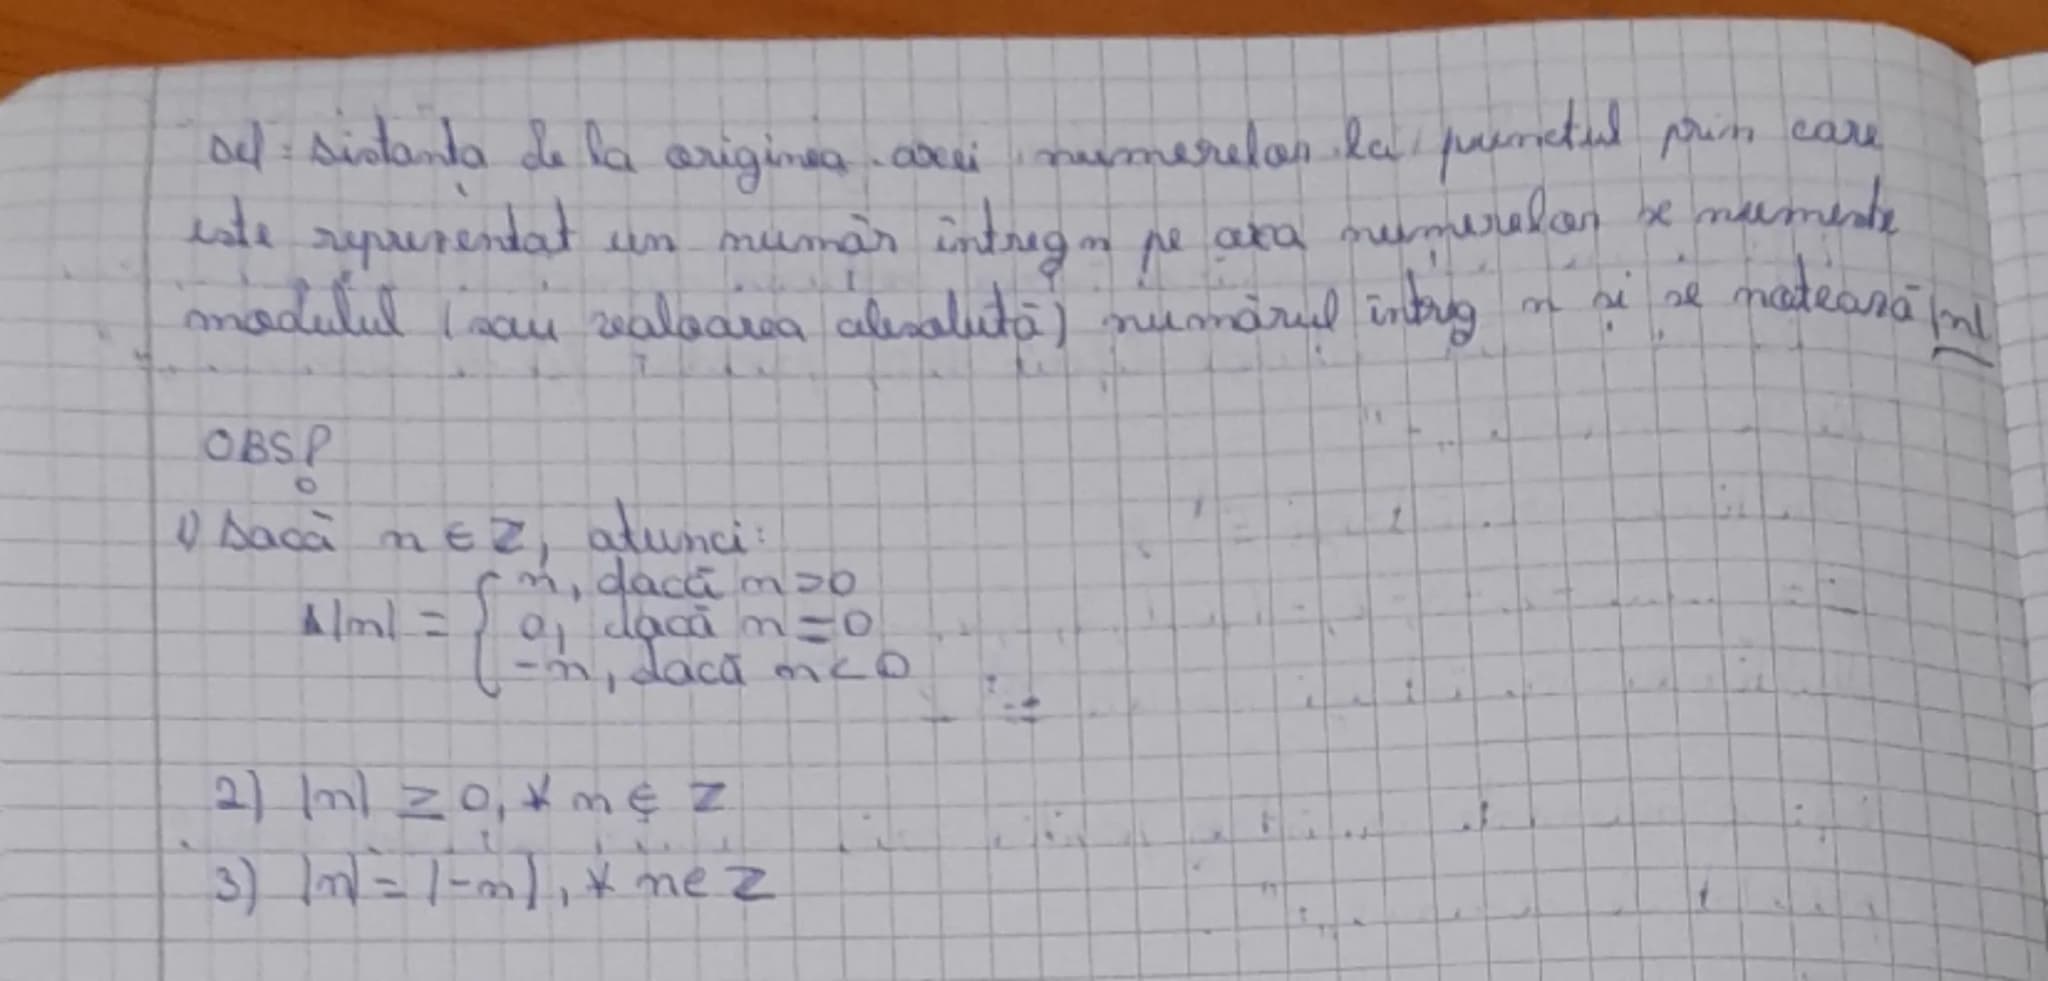 Def: Distanța de la originea axei numerelor la punctul prin care
este reprezentat un număr întreg n pe axa numerelor se numește
modulul (sau valoarea absolută) numărul întreg n și se notează |n|
OBS!
1) Dacă n ∈ Z, atunci:
|n| = { n, dacă n > 0
0, dacă n = 0
-n, dacă n < 0
2) |n| ≥ 0, ∀ n ∈ Z
3) |n| = |-n|, ∀ n ∈ Z